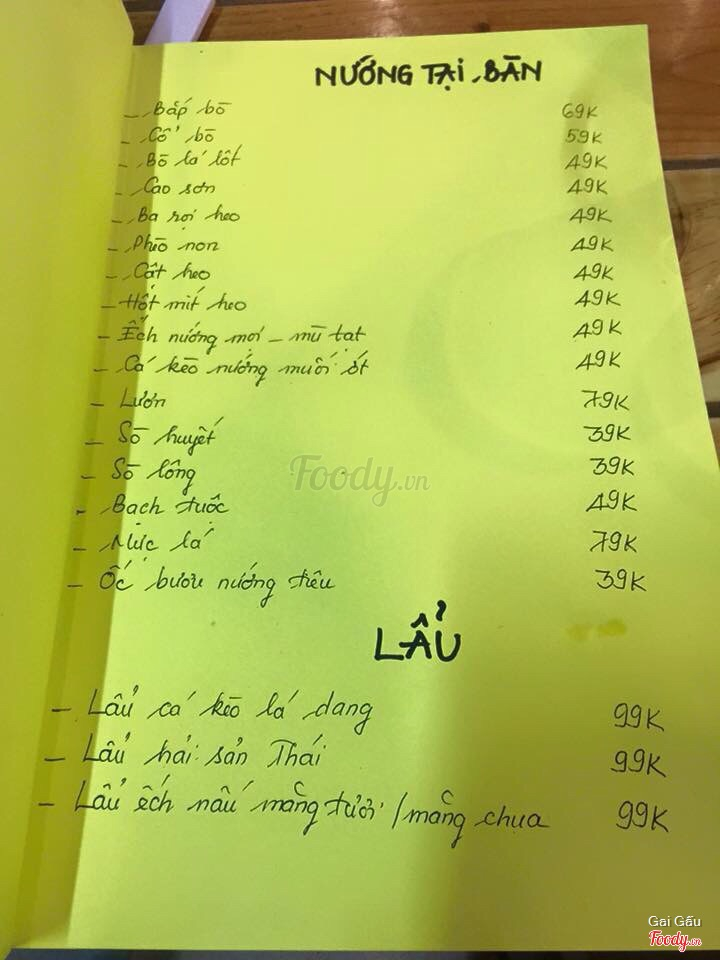 NƯỚNG TẠI BÀN
- Bắp bò 69K
- Cổ bò 59K
- Bò lá lốt 49K
- Cao sơn 49K
- Ba rọi heo 49K
- Phèo non 49K
- Cật heo 49K
- Hốt mít heo 49K
- Ếch nướng mọi - mù tạt 49K
- Cá kèo nướng muối ớt 49K
- Lươn 79K
- Sò huyết 39K
- Sò lông 39K
- Bạch tuộc 49K
- Mực lá 79K
- Ốc bươu nướng tiêu 39K
Foody.vn
LẨU
- Lẩu cá kèo lá dang 99K
- Lẩu hải sản Thái 99K
- Lẩu ếch nấu măng tươi / măng chua 99K
Gai Gấu
Foody.vn